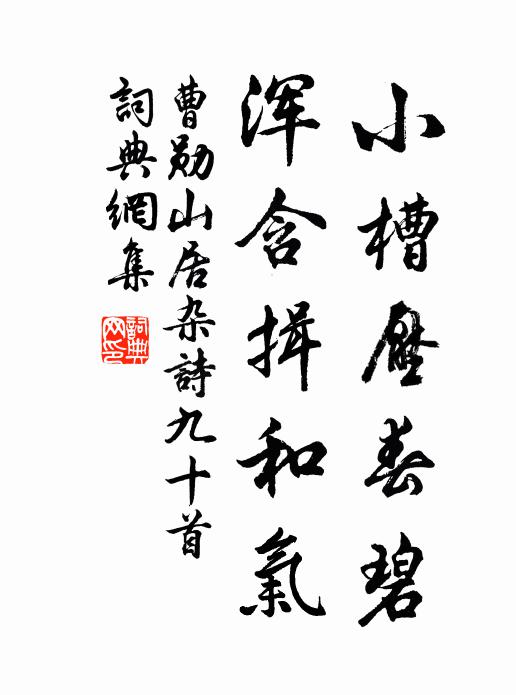 小槽压春碧
浑含揖和氣
曹勋山居杂詩九十首
詞典網集
詞典网印